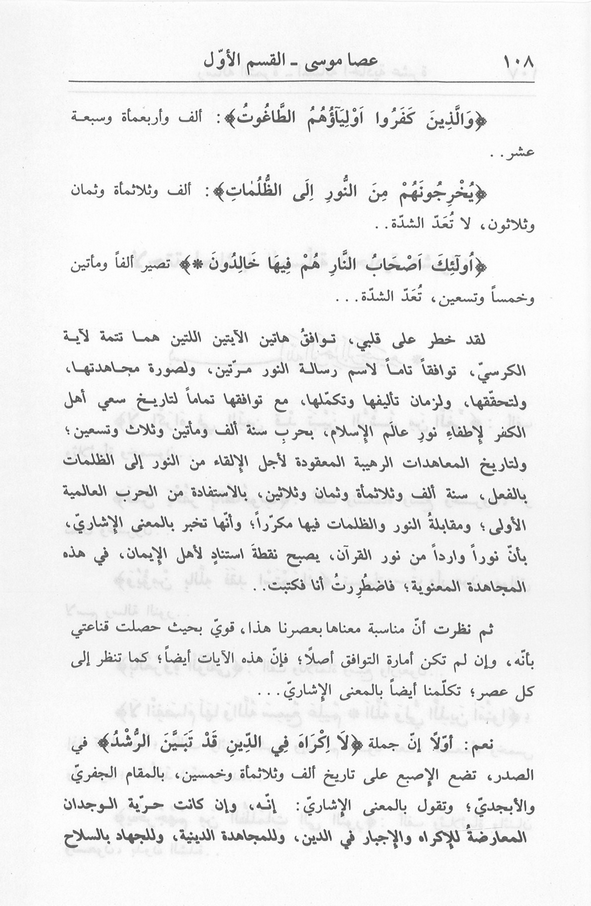 ١٠٨ عصا موسى ـ القسم الأوّل
﴿وَالَّذِينَ كَفَرُوا اَوْلِيَآؤُهُمُ الطَّاغُوتُ﴾: ألف وأربعمأة وسبعة
عشر..
﴿يُخْرِجُونَهُمْ مِنَ النُّورِ اِلَى الظُّلُمٰاتِ﴾: ألف وثلاثمأة وثمان
وثلاثون، لا تُعَدّ الشدّة..
﴿اُولٰٓئِكَ اَصْحَابُ النَّارِ هُمْ فِيهَا خَالِدُونَ *﴾ تصير ألفاً ومأتين
وخمساً وتسعين، تُعَدّ الشدّة...
لقد خطر على قلبي، تـوافقُ هاتين الآيتين اللتين همـا تتمة لآيـة
الكرسيّ، توافقاً تاماً لاسم رسالـة النور مـرّتين، ولصورة مجـاهدتهـا،
ولتحقّقها، ولزمان تأليفها وتكمّلها، مع توافقها تماماً لتاريخ سعي أهل
الكفر لإطفاءِ نورِ عالَم الإسلام، بحربِ سنة ألف ومأتين وثلاث وتسعين؛
ولتاريخ المعاهدات الرهيبة المعقودة لأجل الإلقاء من النور إلى الظلمات
بالفعل، سنة ألف وثلاثمأة وثمان وثلاثين، بالاستفادة من الحرب العالمية
الأولى؛ ومقابلةُ النور والظلمات فيها مكرّراً؛ وأنّها تخبر بالمعنى الإشاريّ،
بأنّ نوراً وارداً من نور القرآن، يصبح نقطةَ استنادٍ لأهل الإيمان، في هذه
المجاهدة المعنوية؛ فاضطُرِرتُ أنا فكتبت..
ثم نظرت أنّ مناسبة معناها بعصرنا هذا، قويّ بحيث حصلت قناعتي
بأنّه، وإن لم تكن أمارة التوافق أصلًا؛ فإنّ هذه الآيات أيضاً؛ كما تنظر إلى
كل عصر؛ تكلّمنا أيضاً بالمعنى الإشاريّ...
نعم: أوّلًا إنّ جملة ﴿لَا اِكْرَاهَ فِي الدِّينِ قَدْ تَبَيَّنَ الرُّشْدُ﴾ في
الصدر، تضع الإصبع على تاريخ ألف وثلاثمأة وخمسين، بالمقام الجفريّ
والأبجديّ؛ وتقول بالمعنى الإشاريّ: إنّـه، وإن كانت حـرّية الـوجدان
المعارضةُ للإكراه والإجبار في الدين، وللمجاهدة الدينية، وللجهاد بالسلاح